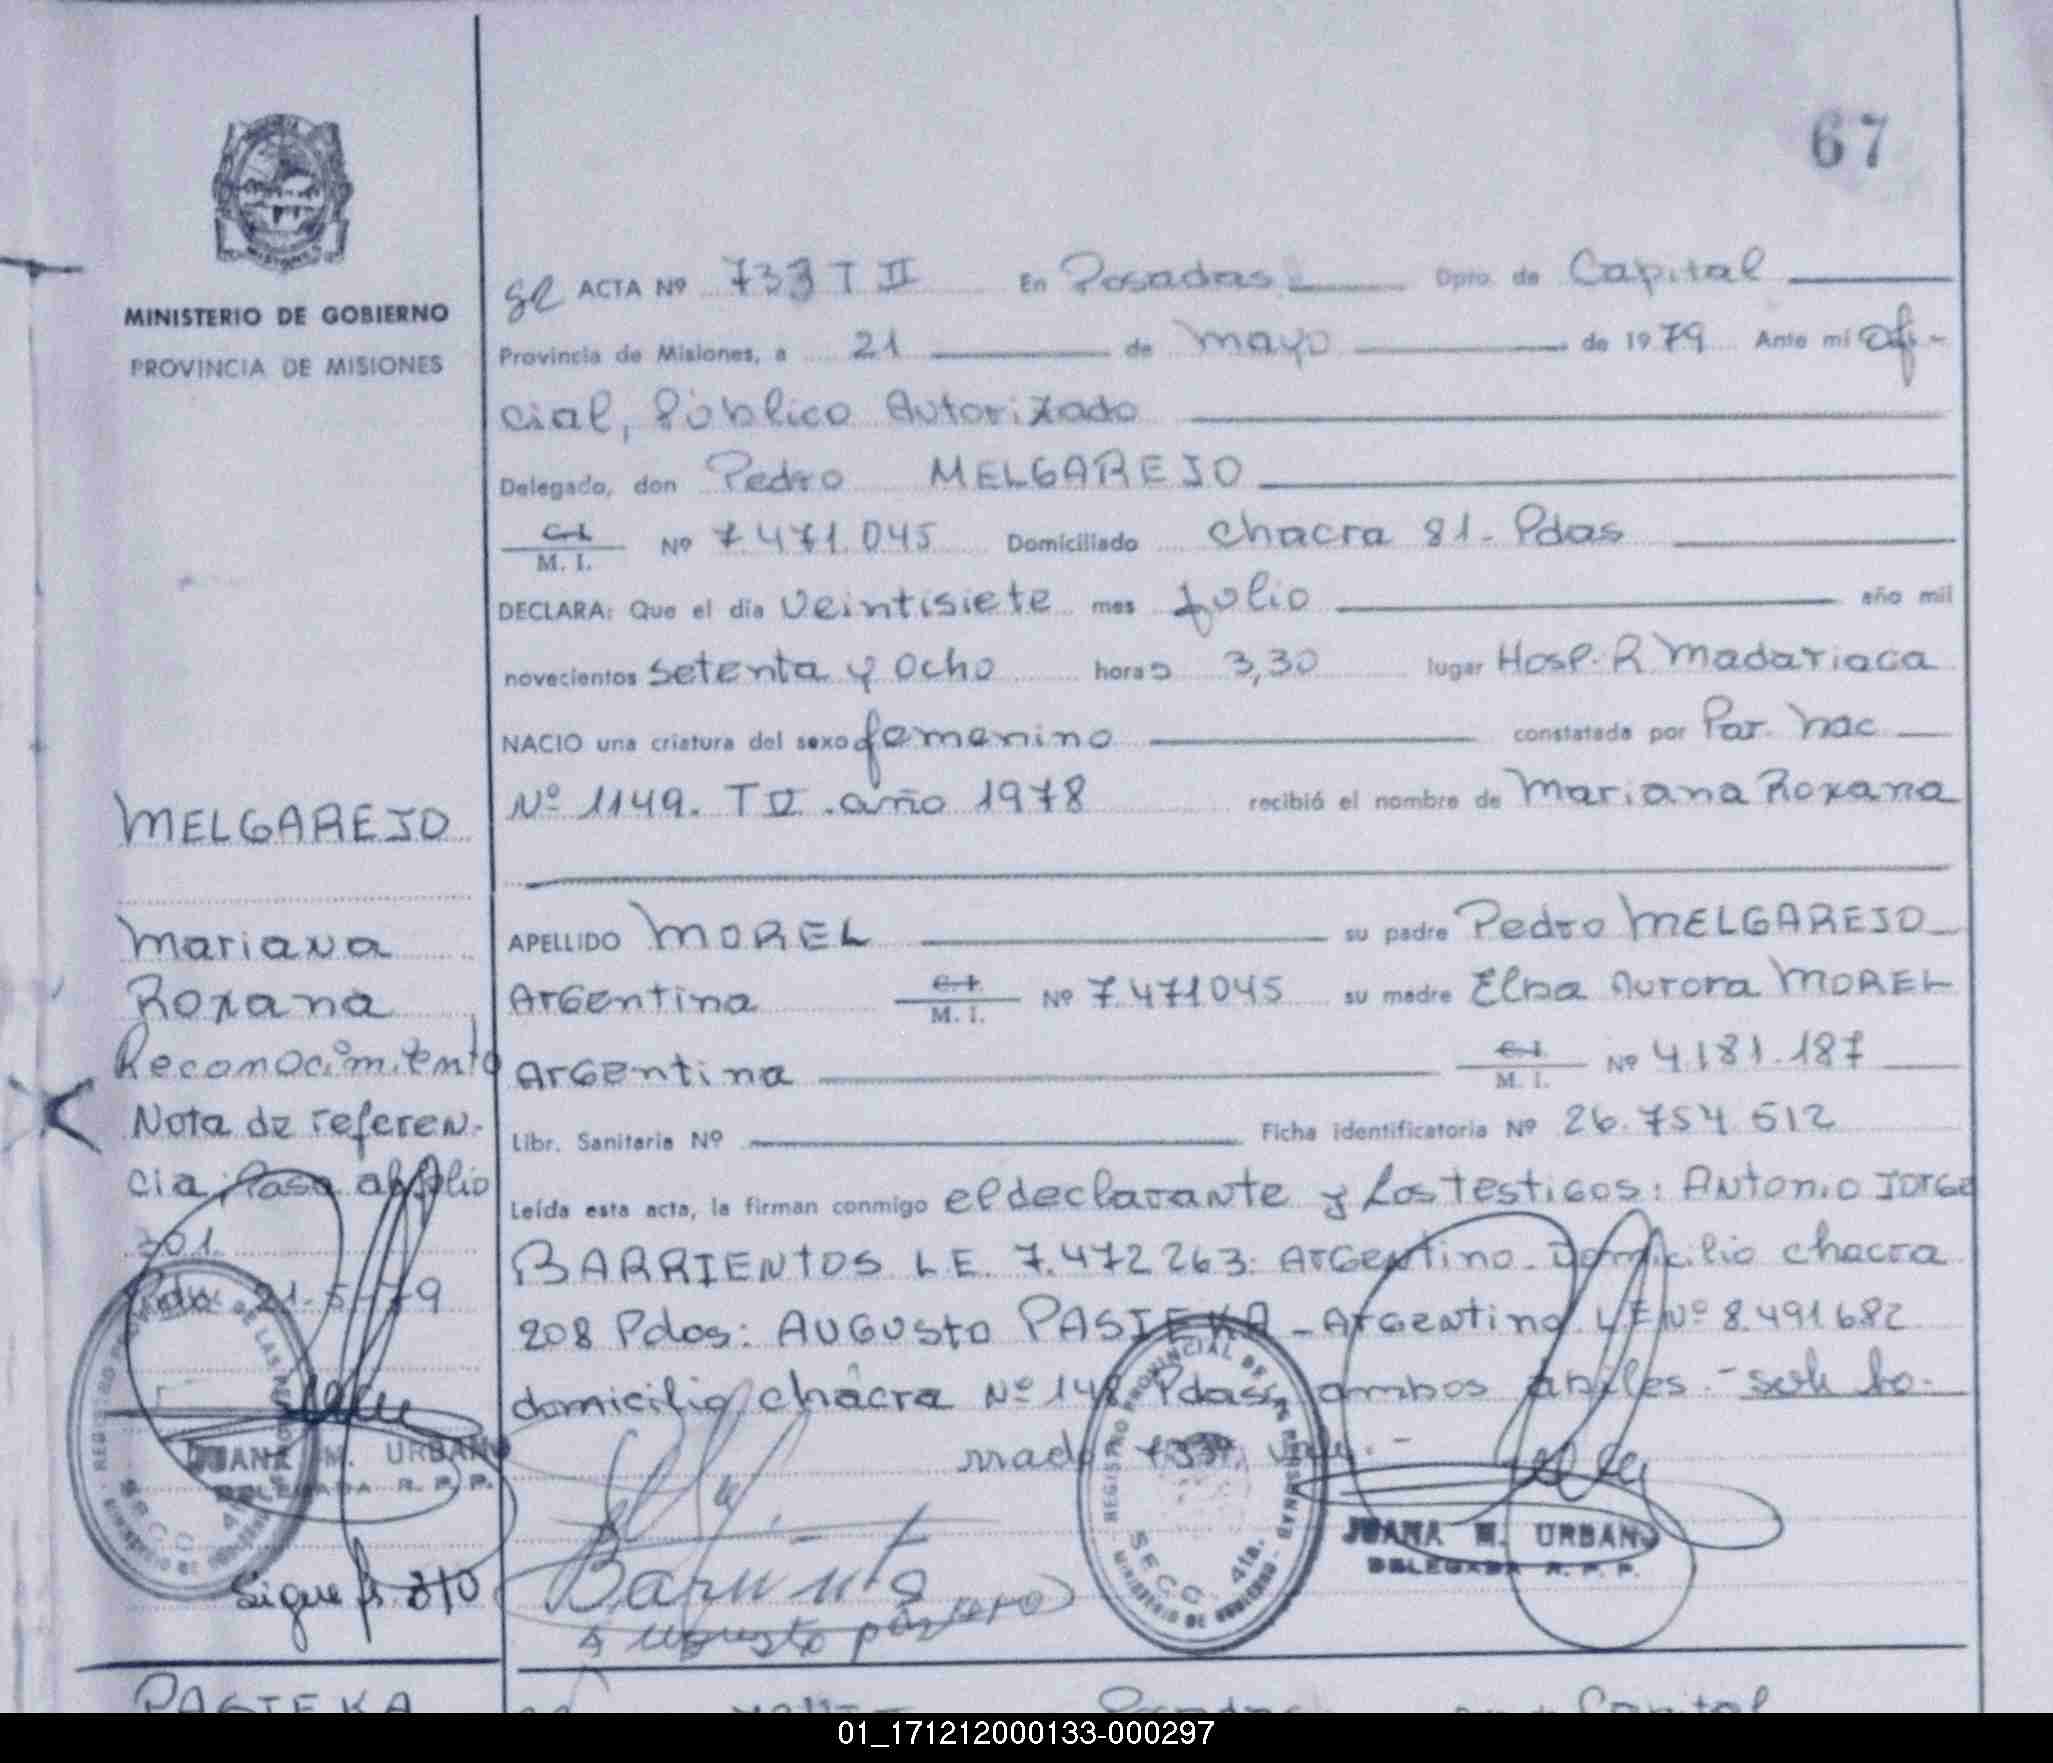 67
MINISTERIO DE GOBIERNO
PROVINCIA DE MISIONES
ACTA Nº 733 T II En Posadas Dpto. de Capital
Provincia de Misiones, a 21 de mayo de 1979 Ante mi Ofi-
cial, Público Autorizado
Delegado, don Pedro MELGAREJO
C.I. M. I. Nº 7.471.045 Domiciliado chacra 81 - Pdas
DECLARA: Que el día veintisiete mes julio año mil
novecientos setenta y ocho horas 3,30 lugar Hosp. R Madariaca
NACIO una criatura del sexo femenino constatada por Par. nac
Nº 1149. T II. año 1978 recibió el nombre de Mariana Roxana
APELLIDO MOREL su padre Pedro MELGAREJO
Argentina C.I. M. I. Nº 7.471045 su madre Elba Aurora MOREL
Argentina C.I. M. I. Nº 4.181.187
Libr. Sanitaria Nº Ficha identificatoria Nº 26.754 612
Leída esta acta, la firman conmigo el declarante y Los testigos: Antonio Jorge
BARRIENTOS L.E. 7.472 263: Argentino - Domicilio chacra
208 Pdas: AUGUSTO PASIEKA - Argentino LE Nº 8.491 682
domicilio chacra Nº 148 Pdas, ambos abiles. -
MELGAREJO
Mariana
Roxana
Reconocimiento
Nota de referen-
cia: Pasa al folio
301
Pdas 21-5-79
JUANA M. URBANO
DELEGADA R. P. P.
Sigue fs. 310
Barrientos
Augusto
REGISTRO PROVINCIAL DE LAS PERSONAS
SECC. 4ta.
MINISTERIO DE GOBIERNO
JUANA M. URBANO
DELEGADA R. P. P.
PASIEKA
Posadas Capital
01_171212000133-000297